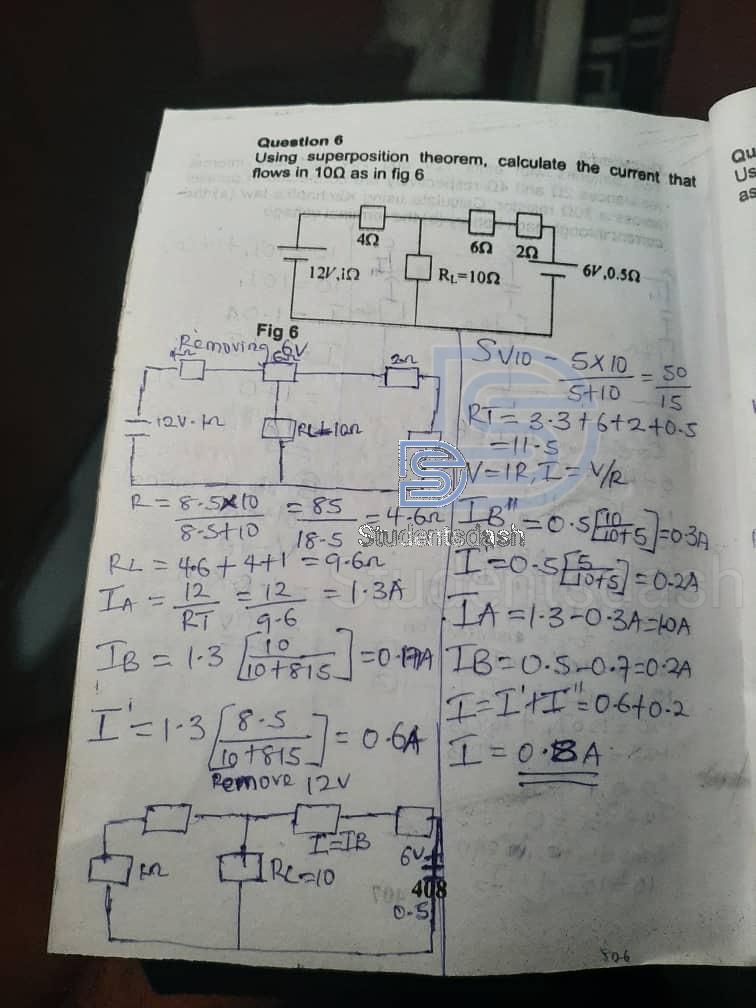 Question 6
Using superposition theorem, calculate the current that
flows in 10Ω as in fig 6
4Ω
6Ω
2Ω
12V,iΩ
RL=10Ω
6V,0.5Ω
Fig 6
Removing 6V
6Ω
2Ω
12V.1Ω
RL=10Ω
R = 8.5x10 / 8.5+10 = 85 / 18.5 = 4.6Ω
RL = 4.6 + 4+1 = 9.6Ω
IA = 12 / RT = 12 / 9.6 = 1.3A
IB = 1.3 [10 / 10+815]
I' = 1.3 [8.5 / 10+815] = 0.6A
Remove 12V
I=IB
1Ω
RL=10
6V
0.5
408
SV10 - 5x10 / 5+10 = 50 / 15
RT = 3.3+6+2+0.5
=11.5
V=IR, I=V/R
IB" = 0.5[10 / 10+5]=0.3A
I" =0.5[5 / 10+5] = 0.2A
IA =1.3-0.3A=10A
IB=0.5-0.7=0.2A
I=I'+I"=0.6+0.2
I = 0.8A
Studentsdash
Studentsdash
Qu
Us
as